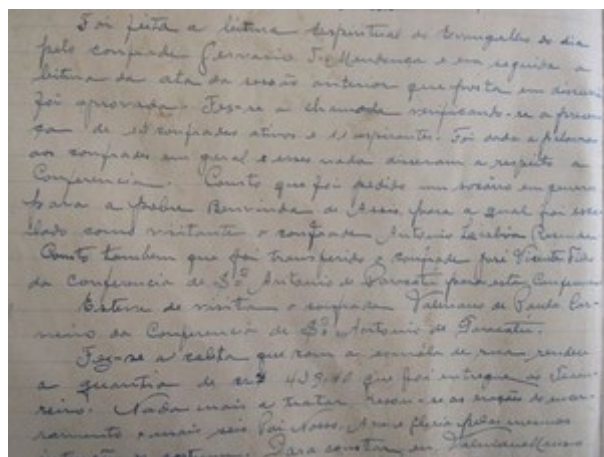 Foi feita a leitura espiritual do Evangelho do dia
pelo confrade Gervasio T. Mendonça e em seguida a
leitura da ata da sessão anterior que posta em discus
foi aprovada. Fez-se a chamada verificando-se a presen
ça de confrades ativos e 11 aspirantes. Foi dada a palavra
aos confrades em geral e esses nada disseram a respeito a
Conferencia. Consto que foi pedido um socário em generos
para a pobre Benvinda de Assis, para a qual foi esca
lado como visitante o confrade Antonio
Consto tambem que foi transferido o confrade José Vicente
da Conferencia de Sto Antonio de Paracatu para esta Conferencia
Esteve de visita o confrade de Paula Car
neiro da Conferencia de Sto Antonio de Paracatu.
Fez-se a coleta que com a esmóla de rua, rendeu
a quantia de que foi entregue ao Tesou
reiro. Nada mais a tratar resou-se as orações de encer
ramento e mais seis Pai Nosso, Ave e Gloria pelas mesmas
Para constar eu,